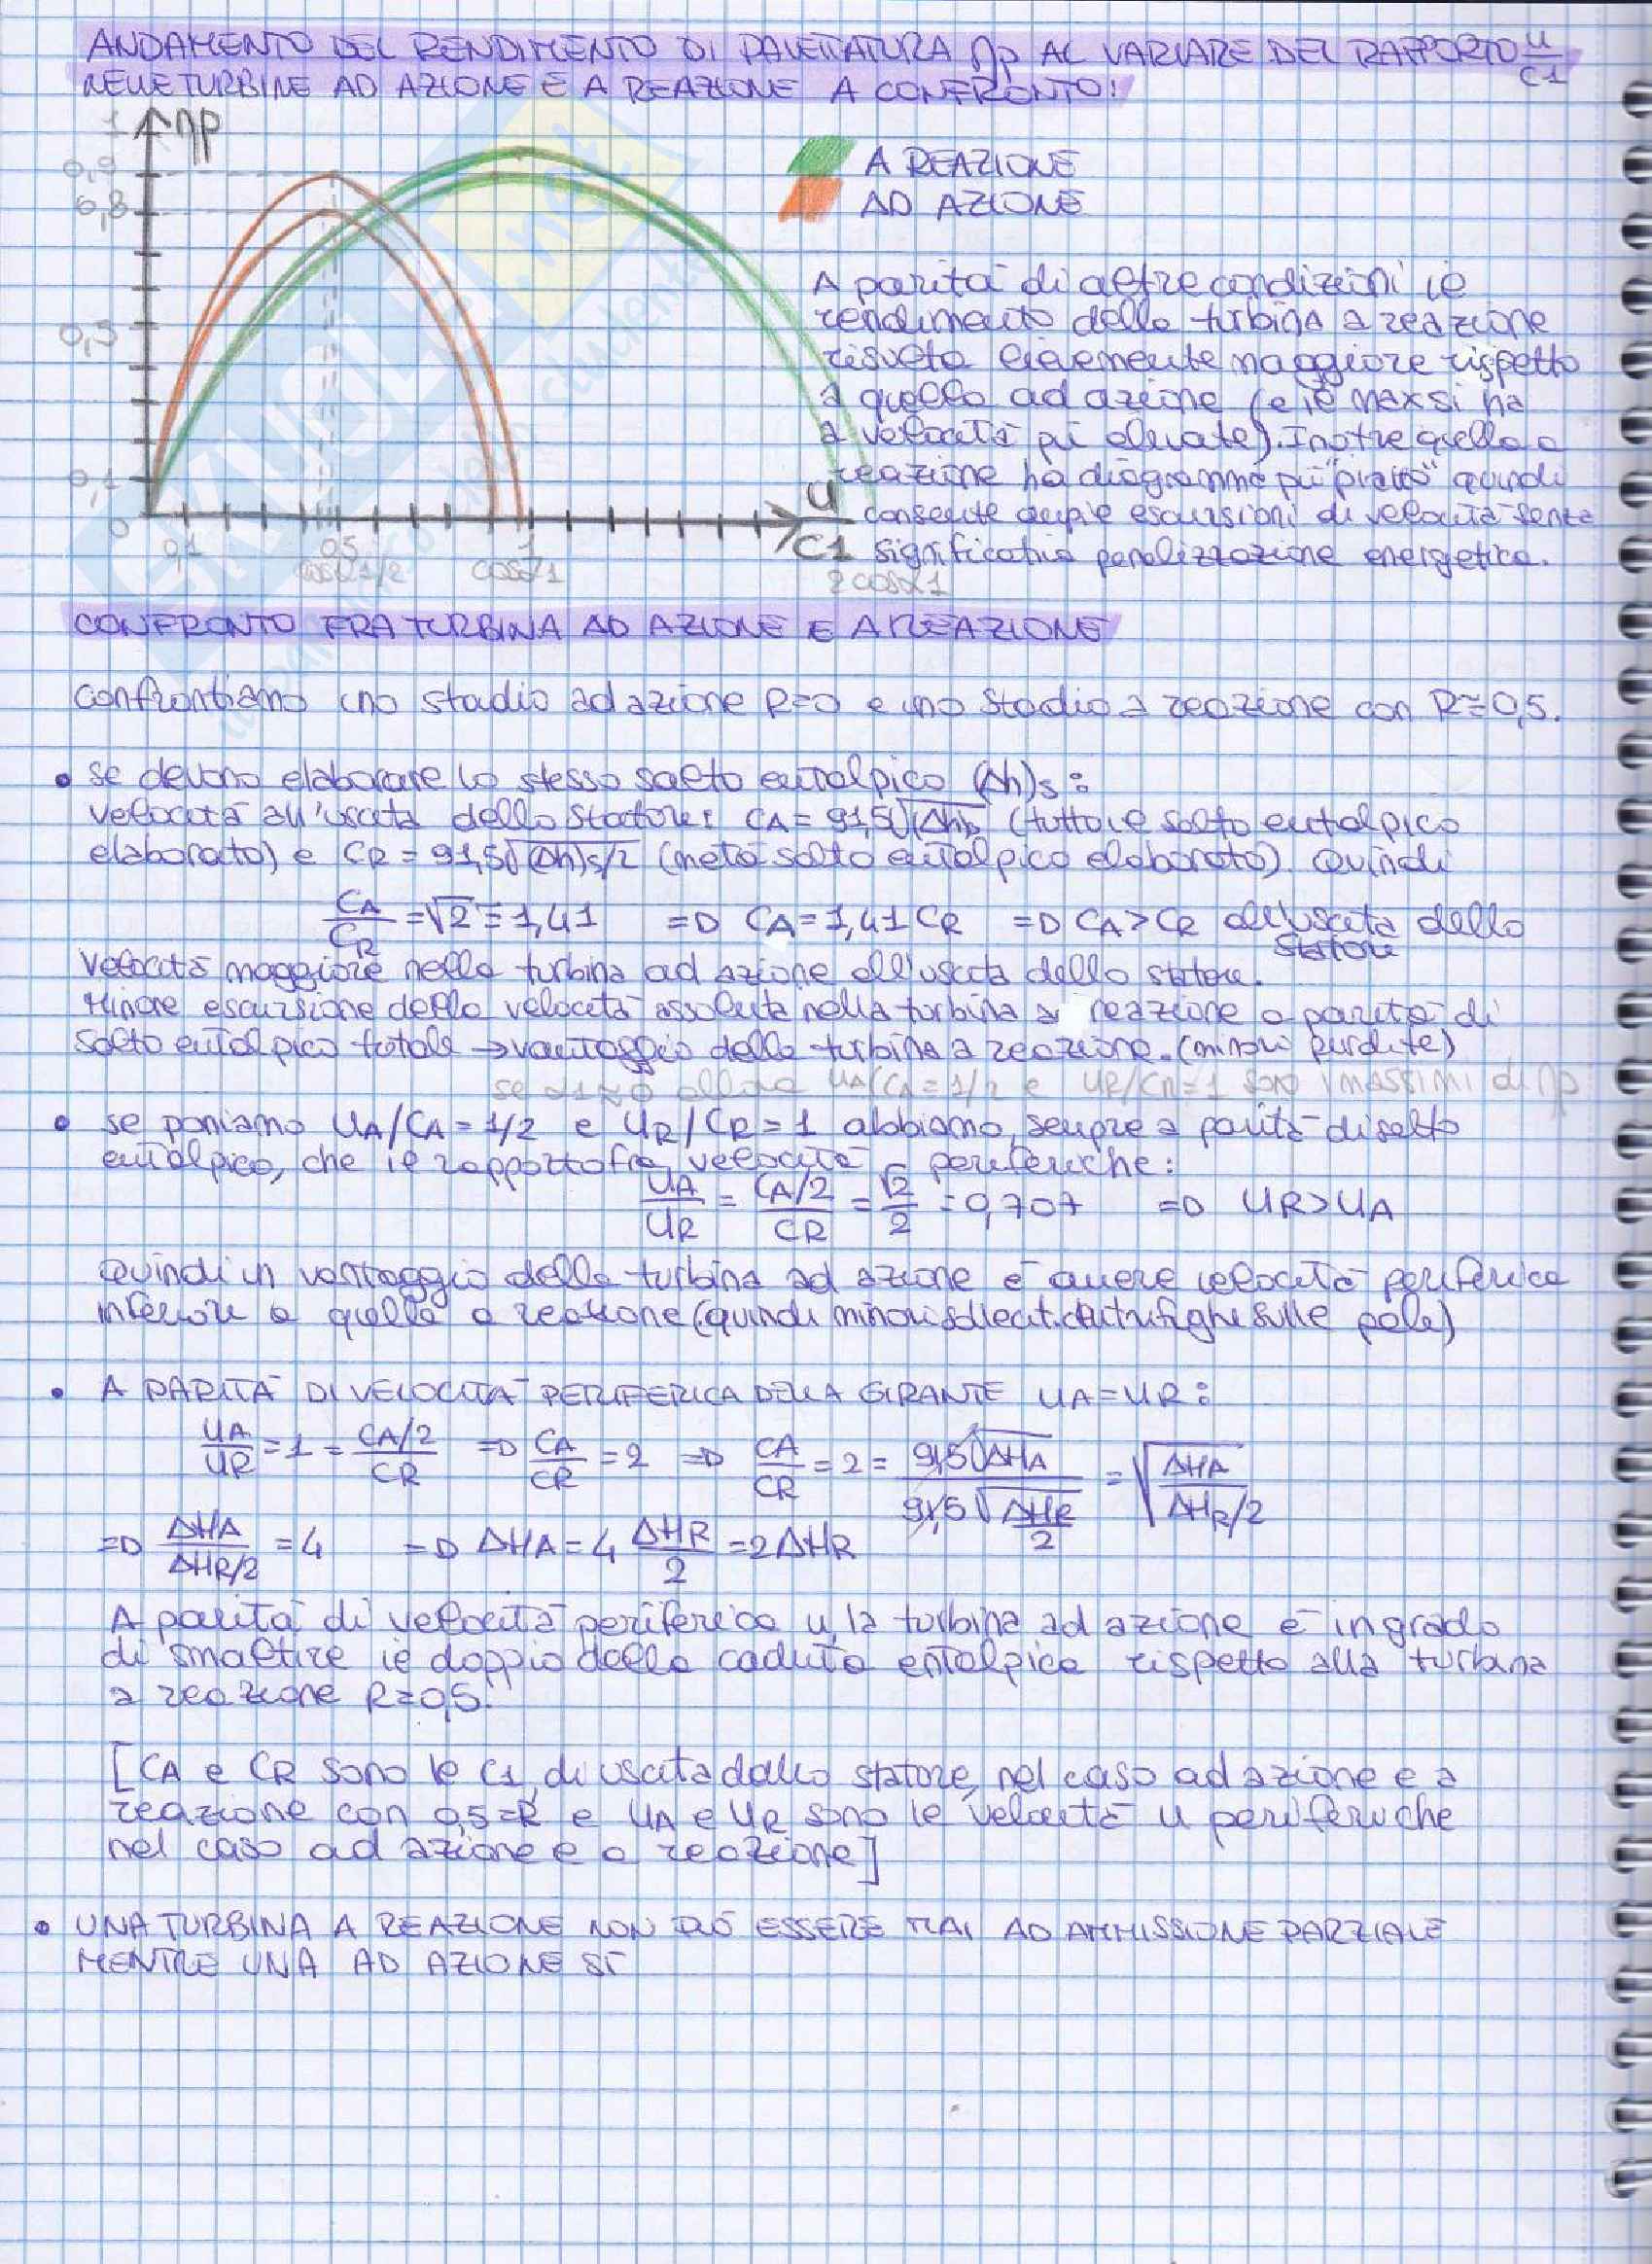 ANDAMENTO DEL RENDIMENTO DI PALETTATURA ηp AL VARIARE DEL RAPPORTO u/c1
NELLE TURBINE AD AZIONE E A REAZIONE A CONFRONTO:
1 ηp
0,9
0,8
0,5
0,1
0
0,1 0,5 1 u/c1
cosα1/2 cosα1 2cosα1
A REAZIONE
AD AZIONE
A parità di altre condizioni il
rendimento della turbina a reazione
risulta lievemente maggiore rispetto
a quello ad azione (e il max si ha
a velocità pi elevate). Inoltre quella a
reazione ha diagramma più "piatto" quindi
consente ampie escursioni di velocità senza
significativa penalizzazione energetica.
CONFRONTO FRA TURBINA AD AZIONE E A REAZIONE
Confrontiamo uno stadio ad azione R=0 e uno stadio a reazione con R=0,5.
• se devono elaborare lo stesso salto entalpico (Δh)s:
velocità all'uscita dello statore: CA = 91,5√(Δh)s (tutto il salto entalpico
elaborato) e CR = 91,5√(Δh)s/2 (metà salto entalpico elaborato). Quindi
CA/CR = √2 = 1,41 => CA = 1,41 CR => CA > CR all'uscita dello
statore
velocità maggiore nella turbina ad azione all'uscita dello statore.
Minore escursione della velocità assoluta nella turbina a reazione a parità di
salto entalpico totale → vantaggio della turbina a reazione. (minori perdite)
se α1≈0 allora UA/CA = 1/2 e UR/CR = 1 sono i massimi di ηp
• se poniamo UA/CA = 1/2 e UR/CR = 1 abbiamo, sempre a parità di salto
entalpico, che il rapporto fra velocità periferiche:
UA/UR = (CA/2)/CR = √2/2 = 0,707 => UR > UA
Quindi un vantaggio della turbina ad azione è avere velocità periferica
inferiore a quella a reazione (quindi minori sollecit. centrifughe sulle pale)
• A PARITÀ DI VELOCITÀ PERIFERICA DELLA GIRANTE UA = UR:
UA/UR = 1 = (CA/2)/CR => CA/CR = 2 => CA/CR = 2 = 91,5√ΔHA / 91,5√(ΔHR/2) = √(ΔHA/(ΔHR/2))
=> ΔHA/(ΔHR/2) = 4 => ΔHA = 4 ΔHR/2 = 2ΔHR
A parità di velocità periferica u, la turbina ad azione è in grado
di smaltire il doppio della caduta entalpica rispetto alla turbina
a reazione R=0,5.
[CA e CR sono le C1 di uscita dallo statore, nel caso ad azione e a
reazione con 0,5=R e UA e UR sono le velocità u periferiche
nel caso ad azione e a reazione]
• UNA TURBINA A REAZIONE NON PUÒ ESSERE MAI AD AMMISSIONE PARZIALE
MENTRE UNA AD AZIONE SÌ